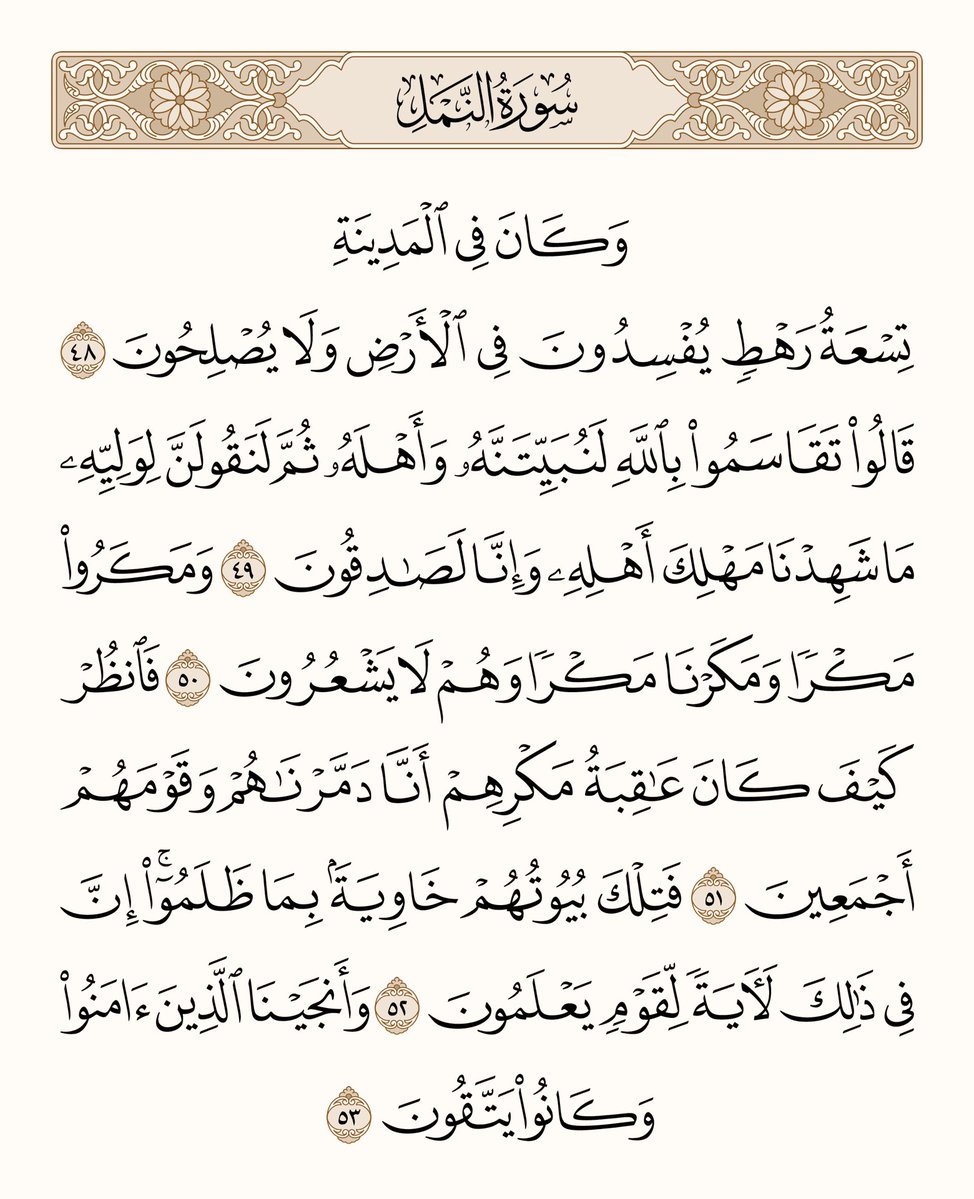 سُورَةُ النَّمۡلِ
وَكَانَ فِي ٱلۡمَدِينَةِ
تِسۡعَةُ رَهۡطٖ يُفۡسِدُونَ فِي ٱلۡأَرۡضِ وَلَا يُصۡلِحُونَ ٤٨
قَالُواْ تَقَاسَمُواْ بِٱللَّهِ لَنُبَيِّتَنَّهُۥ وَأَهۡلَهُۥ ثُمَّ لَنَقُولَنَّ لِوَلِيِّهِۦ
مَا شَهِدۡنَا مَهۡلِكَ أَهۡلِهِۦ وَإِنَّا لَصَٰدِقُونَ ٤٩ وَمَكَرُواْ
مَكۡرٗا وَمَكَرۡنَا مَكۡرٗا وَهُمۡ لَا يَشۡعُرُونَ ٥٠ فَٱنظُرۡ
كَيۡفَ كَانَ عَٰقِبَةُ مَكۡرِهِمۡ أَنَّا دَمَّرۡنَٰهُمۡ وَقَوۡمَهُمۡ
أَجۡمَعِينَ ٥١ فَتِلۡكَ بُيُوتُهُمۡ خَاوِيَةَۢ بِمَا ظَلَمُوٓاْۚ إِنَّ
فِي ذَٰلِكَ لَأٓيَةٗ لِّقَوۡمٖ يَعۡلَمُونَ ٥٢ وَأَنجَيۡنَا ٱلَّذِينَ ءَامَنُواْ
وَكَانُواْ يَتَّقُونَ ٥٣